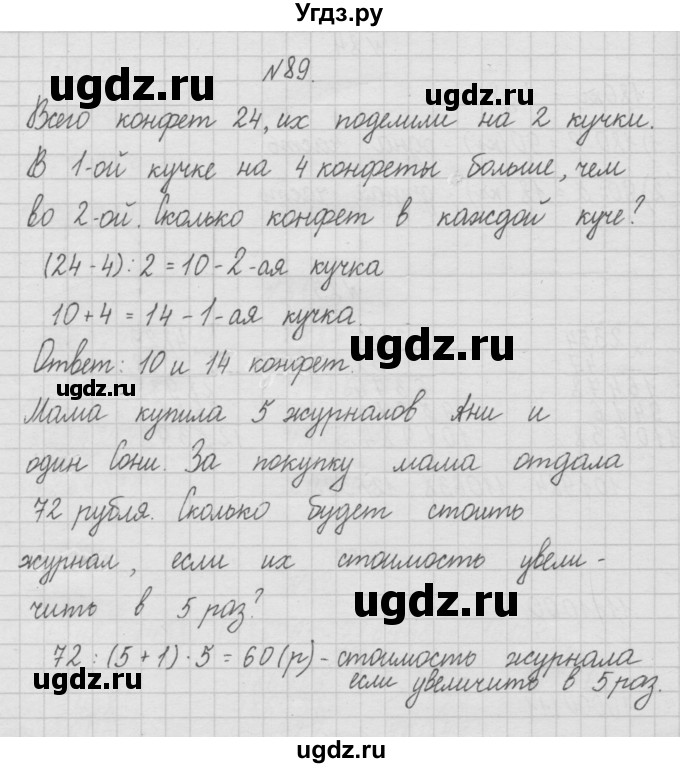 Угдз.ру
№89.
Всего конфет 24, их поделили на 2 кучки.
В 1-ой кучке на 4 конфеты больше, чем
во 2-ой. Сколько конфет в каждой куче?
(24-4):2=10-2-ая кучка
10+4=14-1-ая кучка.
Ответ: 10 и 14 конфет.
Мама купила 5 журналов Ани и
один Сони. За покупку мама отдала
72 рубля. Сколько будет стоить
журнал, если их стоимость увели-
чить в 5 раз?
72:(5+1)·5=60(р)-стоимость журнала
если увеличить в 5 раз.
ugdz.ru
ugdz.ru
ugdz.ru
ugdz.ru
ugdz.ru
ugdz.ru
ugdz.ru